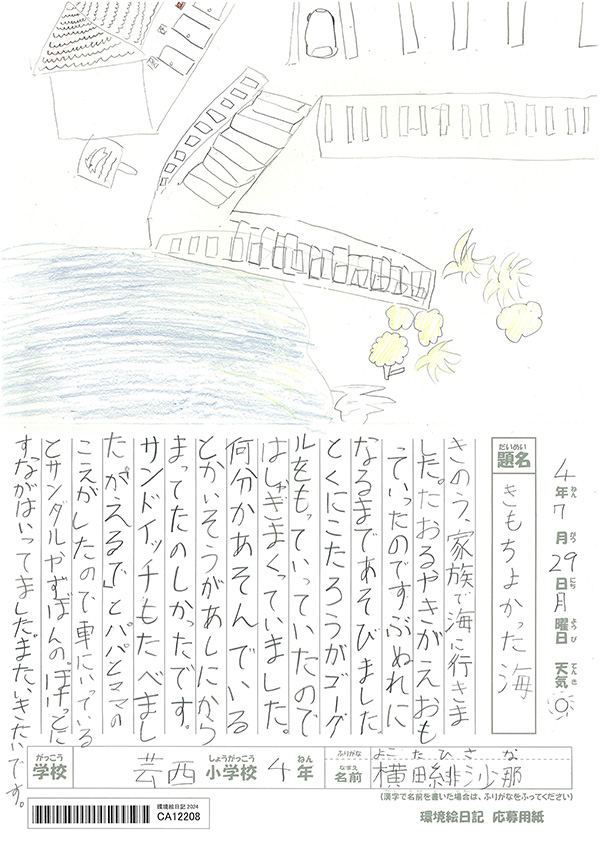 4年ねん7月がつ29日にち月曜日ようび天気てんき
だいめい
題名
きもちよかった海
きのう、家族で海に行きま
した。たおるやきがえおも
ていったのですぶぬれに
なるまであそびました。
とくにこたろうがゴーグ
ルをもっていっていたので
はしゃぎまくっていました。
何分かあそんでいる
とかいそうがあしにから
まってたのしかったです。
サンドイッチもたべまし
た「かえるで」とパパとママの
こえがしたので車にいっている
とサンダルやずぼんのぽけっとに
すながはいってました。また、いきたいです。
がっこう
学校
芸西
しょうがっこう
小学校
4
ねん
年
ふりがな
よこたひさな
なまえ
名前
横田緋沙那
(漢字で名前を書いた場合は、ふりがなをふってください)
環境絵日記 2024
CA12208
環境絵日記 応募用紙